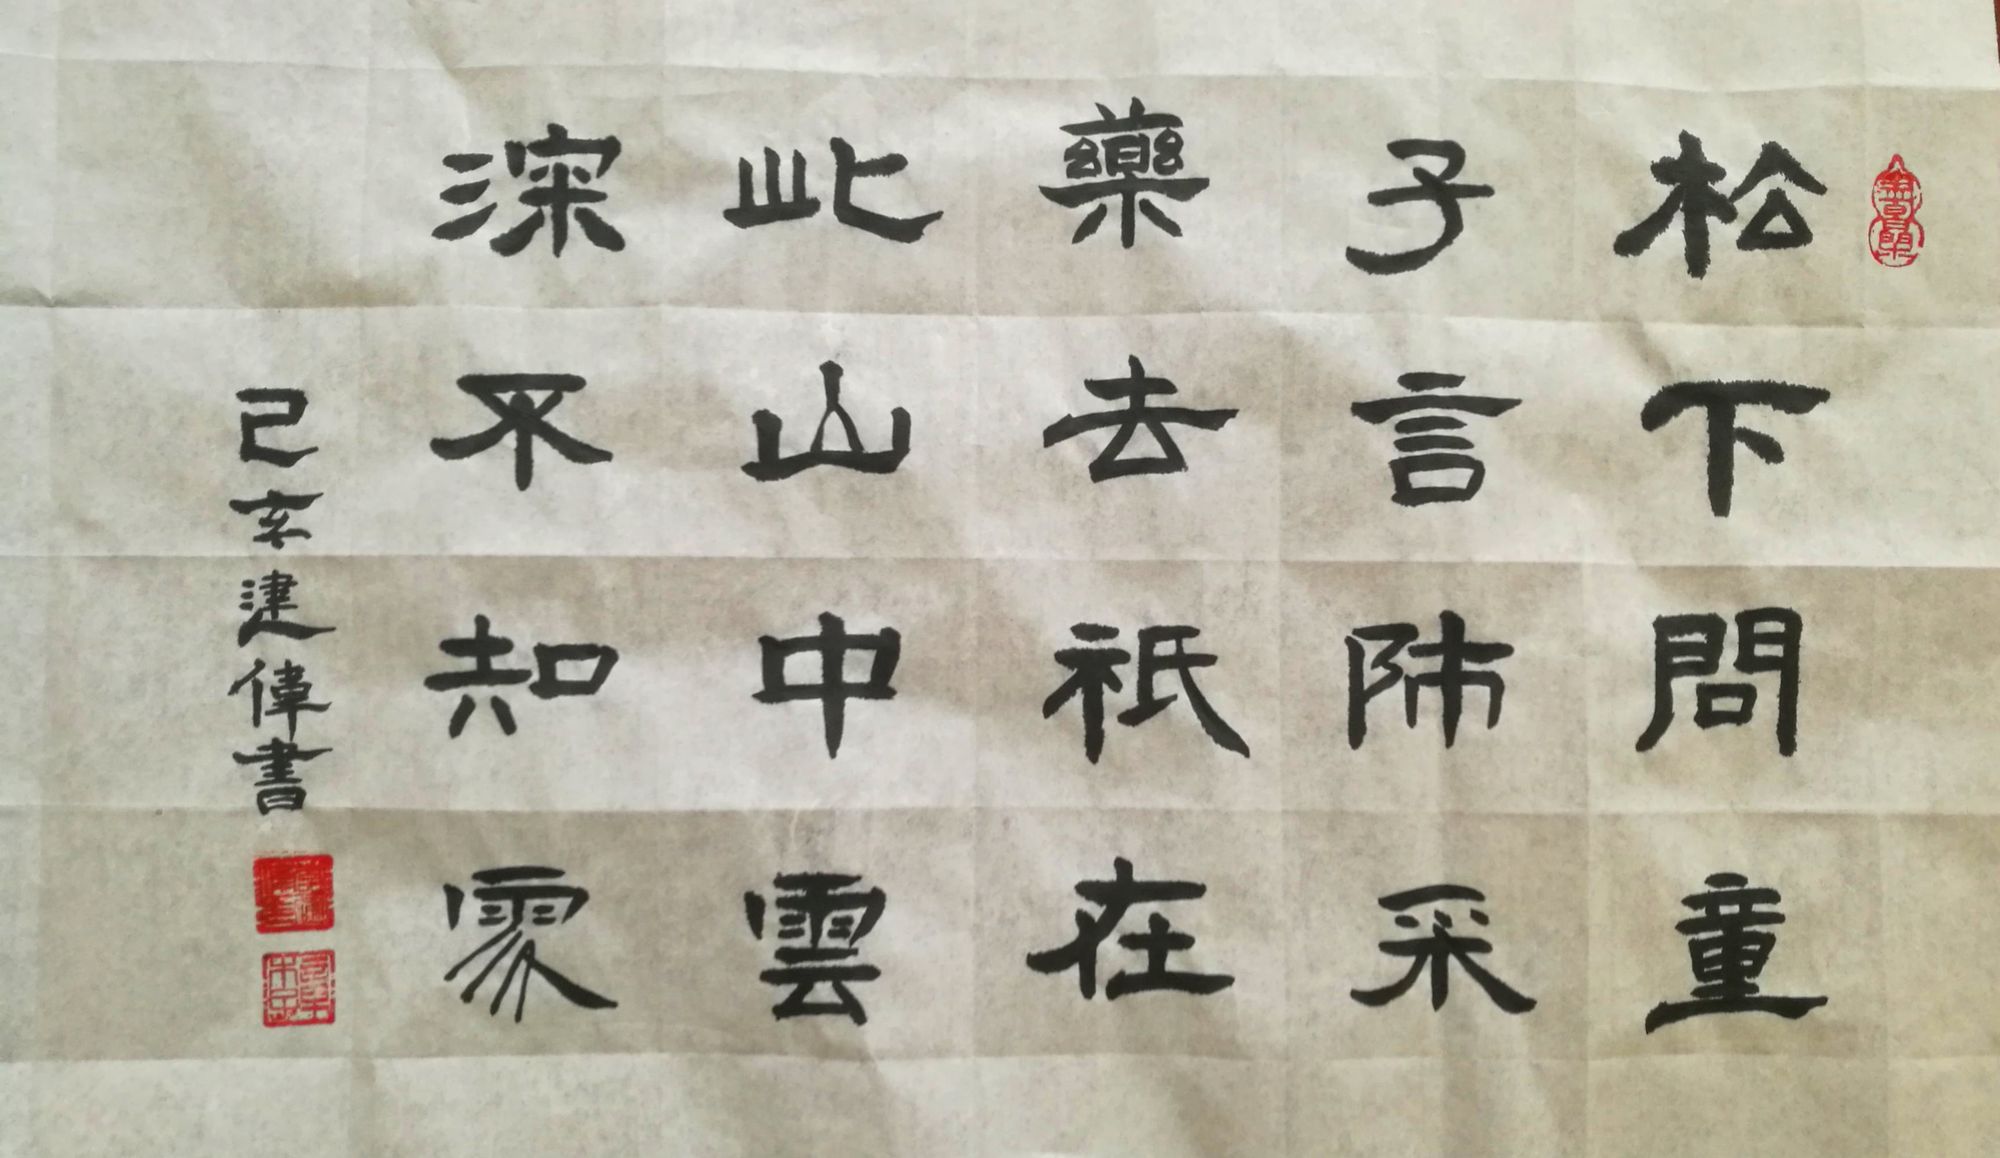 松下問童
子言師采
藥去祇在
此山中雲
深不知處
己亥建偉書